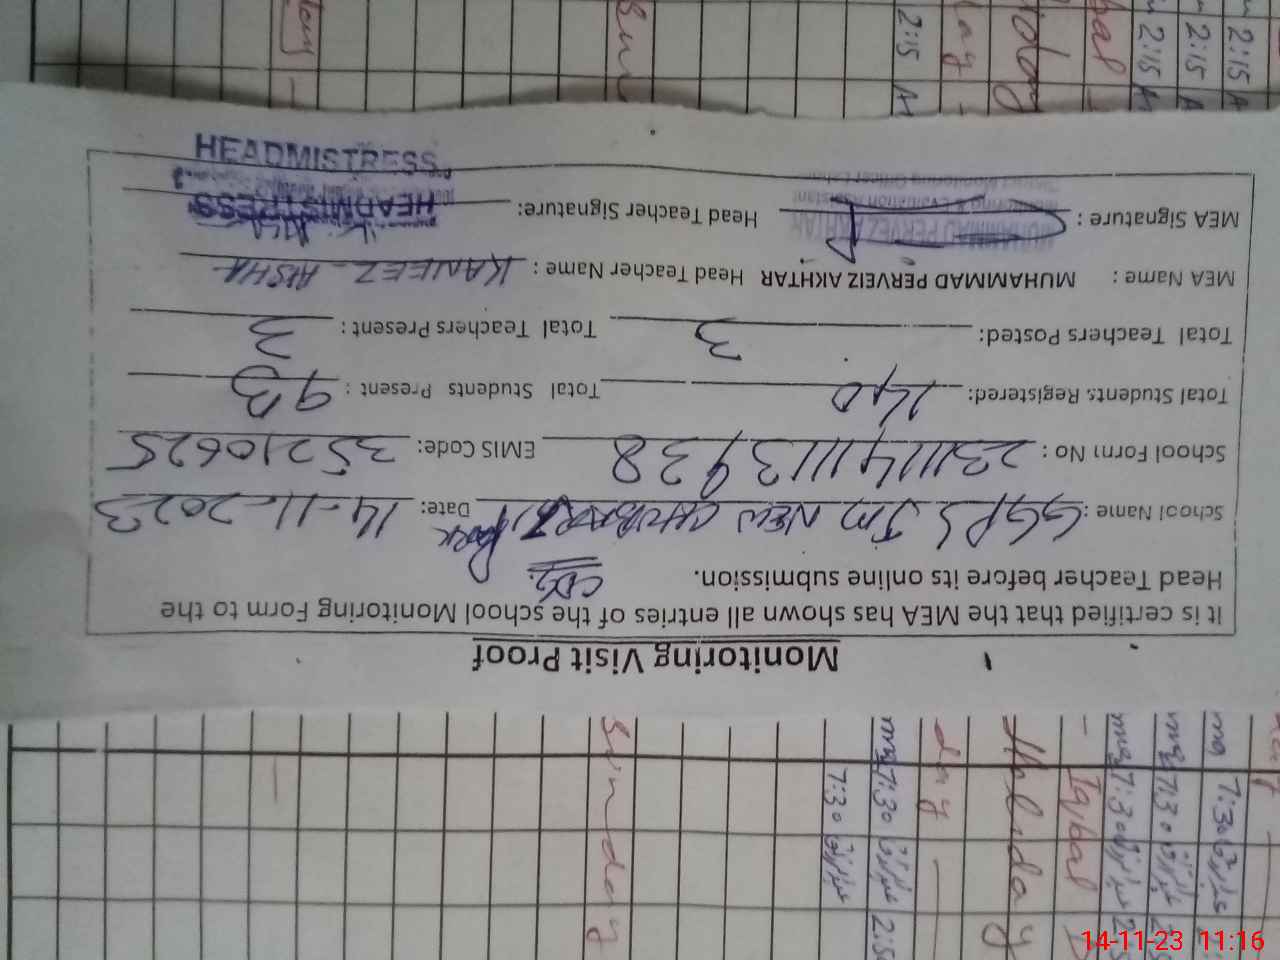 Monitoring Visit Proof
It is certified that the MEA has shown all entries of the school Monitoring Form to the
Head Teacher before its online submission.
School Name : GGPS JM NEW CHUBARJI PARK Date: 14-11-2023
School Form No : 2311141113938 EMIS Code: 35210625
Total Students Registered: 140 Total Students Present : 93
Total Teachers Posted: 3 Total Teachers Present : 3
MEA Name : MUHAMMAD PERVEIZ AKHTAR Head Teacher Name : KANEEZ AISHA
MEA Signature : Head Teacher Signature:
MUHAMMAD PERVEIZ AKHTAR
Monitoring & Evaluation Assistant
HEADMISTRESS
HEADMISTRESS
Sunday
Holiday
Iqbal
day
7:30
7:30
7:30
7:30
7:30
2:15
2:15
2:15
2:15
14-11-23 11:16